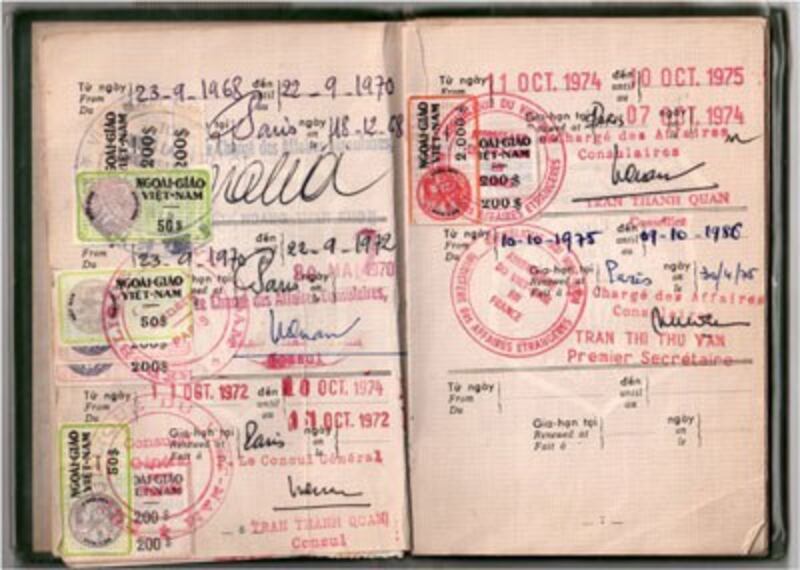 Từ ngày
From
Du
23-9-1968
đến
until
au
22-9-1970
tại
Paris
ngày
on
le
18-12-68
Le Chargé des Affaires Consulaires,
NGOẠI-GIAO
VIỆT-NAM
200$
200$
NGOẠI-GIAO
VIỆT-NAM
50$
Từ ngày
From
Du
23-9-1970
đến
until
au
22-9-1972
Gia-hạn tại
Renewed at
Fait à
Paris
ngày
on
le
20 MAI 1970
Le Chargé des Affaires Consulaires,
Consul
NGOẠI-GIAO
VIỆT-NAM
50$
200$
Từ ngày
From
Du
11 OCT. 1972
đến
until
au
10 OCT. 1974
Gia-hạn tại
Renewed at
Fait à
Paris
ngày
on
le
11 OCT. 1972
Le Consul Général
TRAN THANH QUAN
Consul
NGOẠI-GIAO
VIỆT-NAM
50$
NGOẠI-GIAO
VIỆT-NAM
200$
200$
— 6
Từ ngày
From
Du
11 OCT. 1974
đến
until
au
10 OCT. 1975
Gia-hạn tại
Renewed at
Paris
07 OCT. 1974
Chargé des Affaires
Consulaires
TRAN THANH QUAN
Conseiller
NGOẠI-GIAO
VIỆT-NAM
2.000$
NGOẠI-GIAO
VIỆT-NAM
200$
200$
AFFAIRES ETRANGERES
Từ ngày
From
Du
10-10-1975
đến
until
au
09-10-1986
Gia-hạn tại
Renewed at
Fait à
Paris
ngày
on
le
30/4/75
Chargé des Affaires
Consulaires
TRAN THI THU VAN
Premier Secrétaire
DU VIET
EN
FRANCE
Ministère des AFFAIRES ETRANGERES
Từ ngày
From
Du
đến
until
au
Gia-hạn tại
Renewed at
Fait à
ngày
on
le
— 7 —